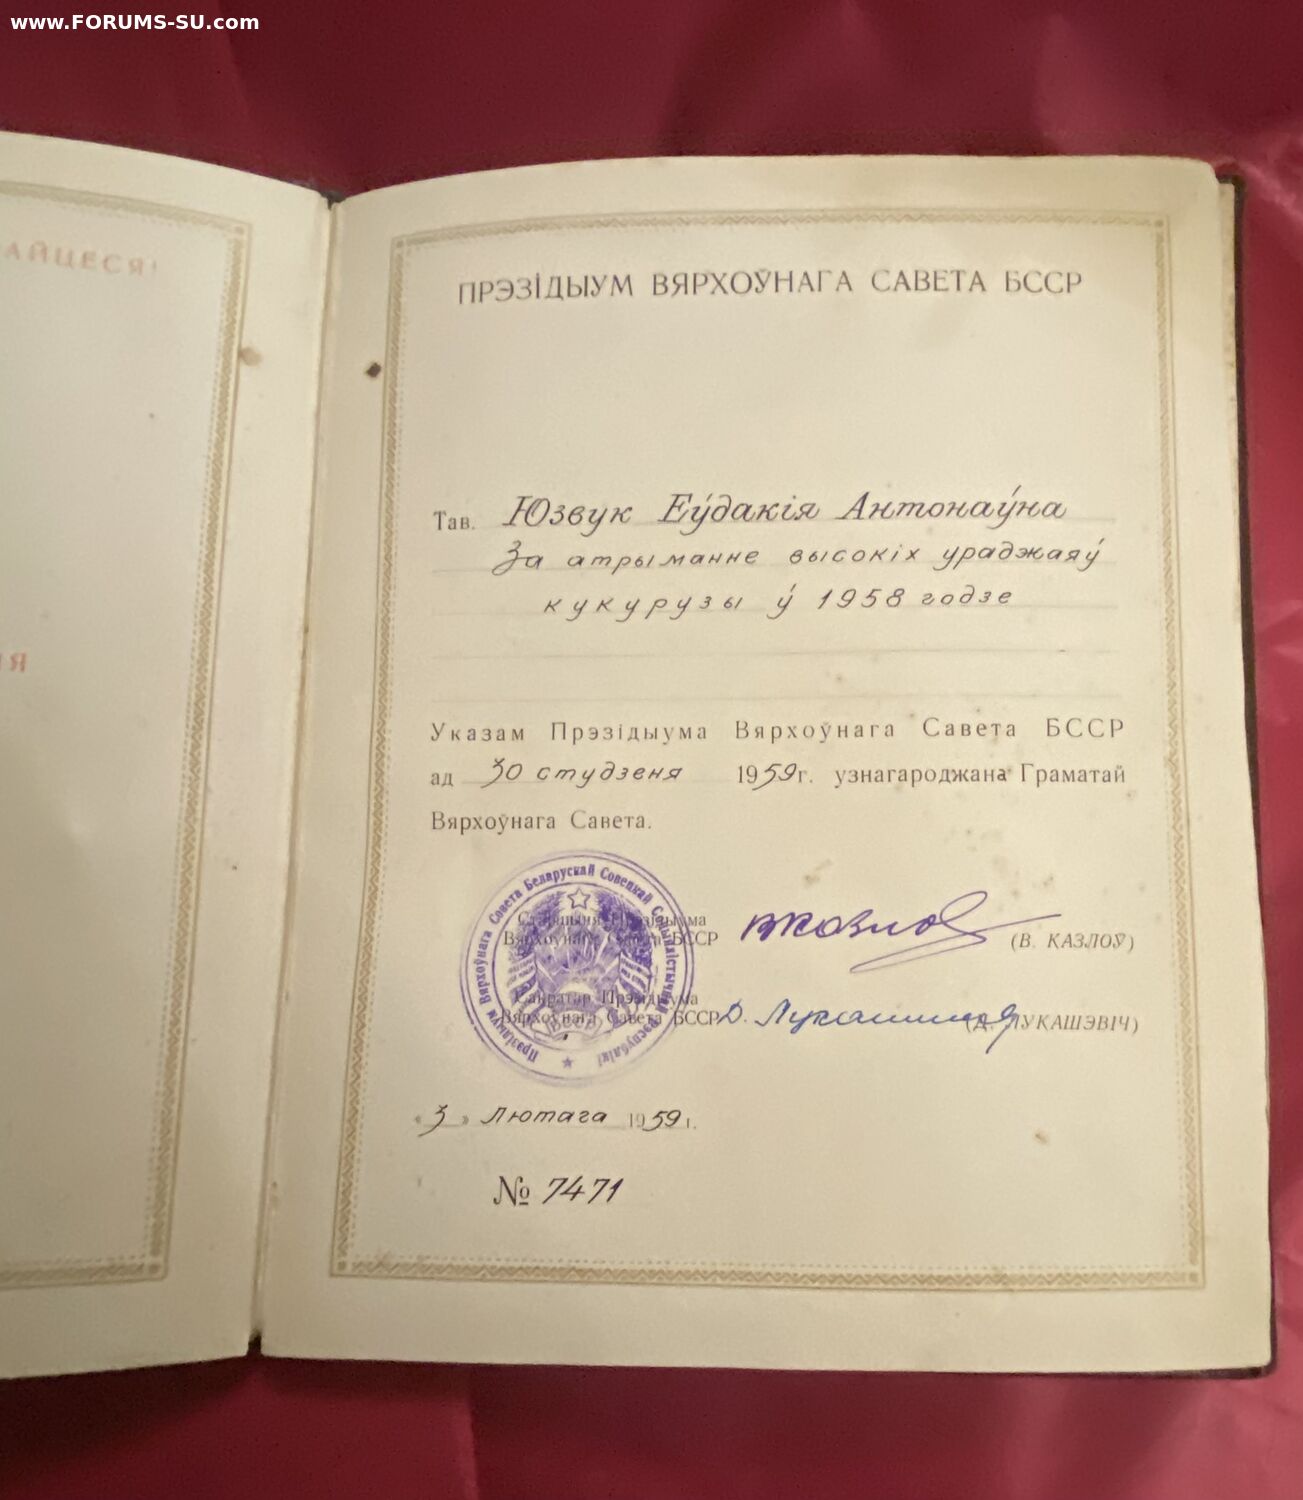 www.FORUMS-SU.com
АЙЦЕСЯ!
ІЯ
ПРЭЗІДЫУМ ВЯРХОЎНАГА САВЕТА БССР
Тав. Юзвук Еўдакія Антонаўна
За атрыманне высокіх ураджаяў
кукурузы ў 1958 годзе
Указам Прэзідыума Вярхоўнага Савета БССР
ад 30 студзеня 1959 г. узнагароджана Граматай
Вярхоўнага Савета.
Прэзідыум Вярхоўнага Совета Беларускай Совецкай Соцыялістычнай Рэспублікі
БССР
Старшыня Прэзідыума
Вярхоўнага Савета БССР В Козлов (В. КАЗЛОЎ)
Сакратар Прэзідыума
Вярхоўнага Савета БССР Д. (Д. ЛУКАШЭВІЧ)
«3» лютага 1959 г.
№ 7471